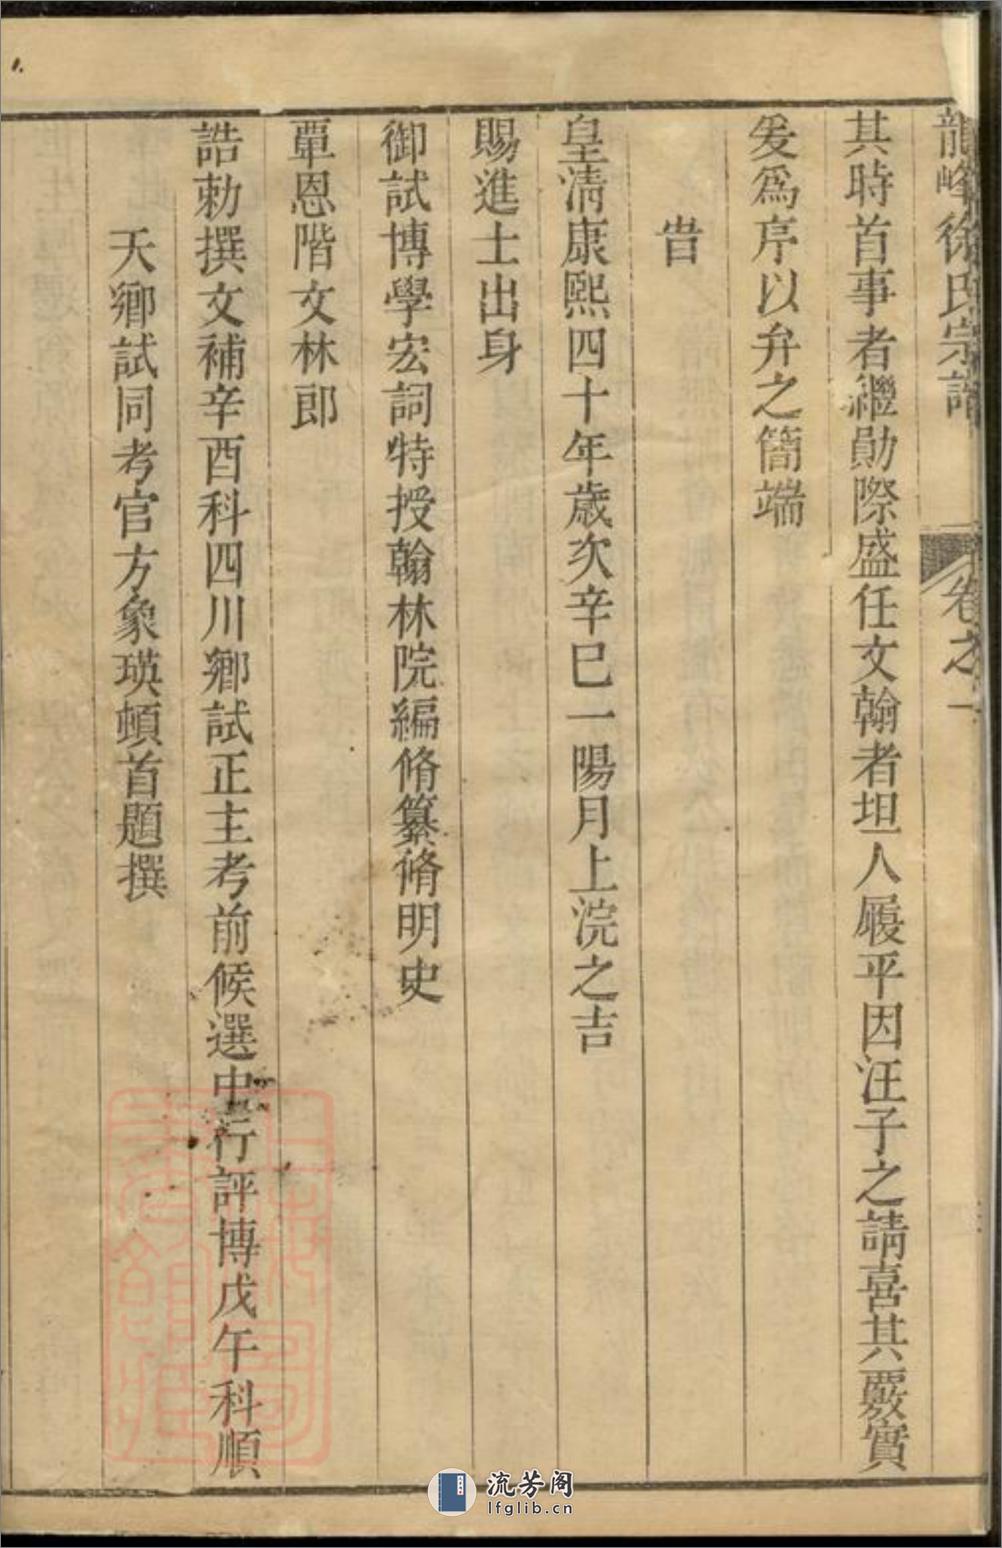 龍峰徐氏宗譜 卷之一
其時首事者繼勛際盛任文翰者坦人履平因汪子之請喜其覈實
爰爲序以弁之簡端
旹
皇淸康熙四十年歲次辛巳一陽月上浣之吉
賜進士出身
御試博學宏詞特授翰林院編脩纂脩明史
覃恩階文林郎
誥勅撰文補辛酉科四川鄉試正主考前候選中行評博戊午科順
天鄉試同考官方象瑛頓首題撰
流芳阁
lfglib.cn